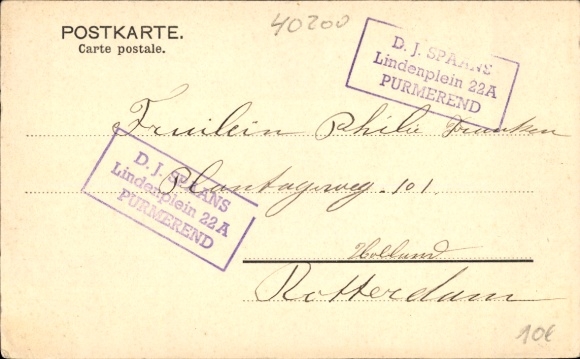 40200
POSTKARTE.
Carte postale.
D. J. SPAANS
Lindenplein 22A
PURMEREND
Fruilein Philie Franken
D. J. SPAANS
Lindenplein 22A
PURMEREND
Plantageweg. 101.
Holland
Rotterdam
10€